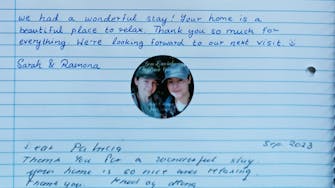 we had a wonderful stay! Your home is a
beautiful place to relax. Thank you so much for
everything. We're looking forward to our next visit. :)
Sarah & Ramona
Sep. 2023
Dear Patricia
Thank You for a wonderful stay
your home is so nice and relaxing.
Thank you.